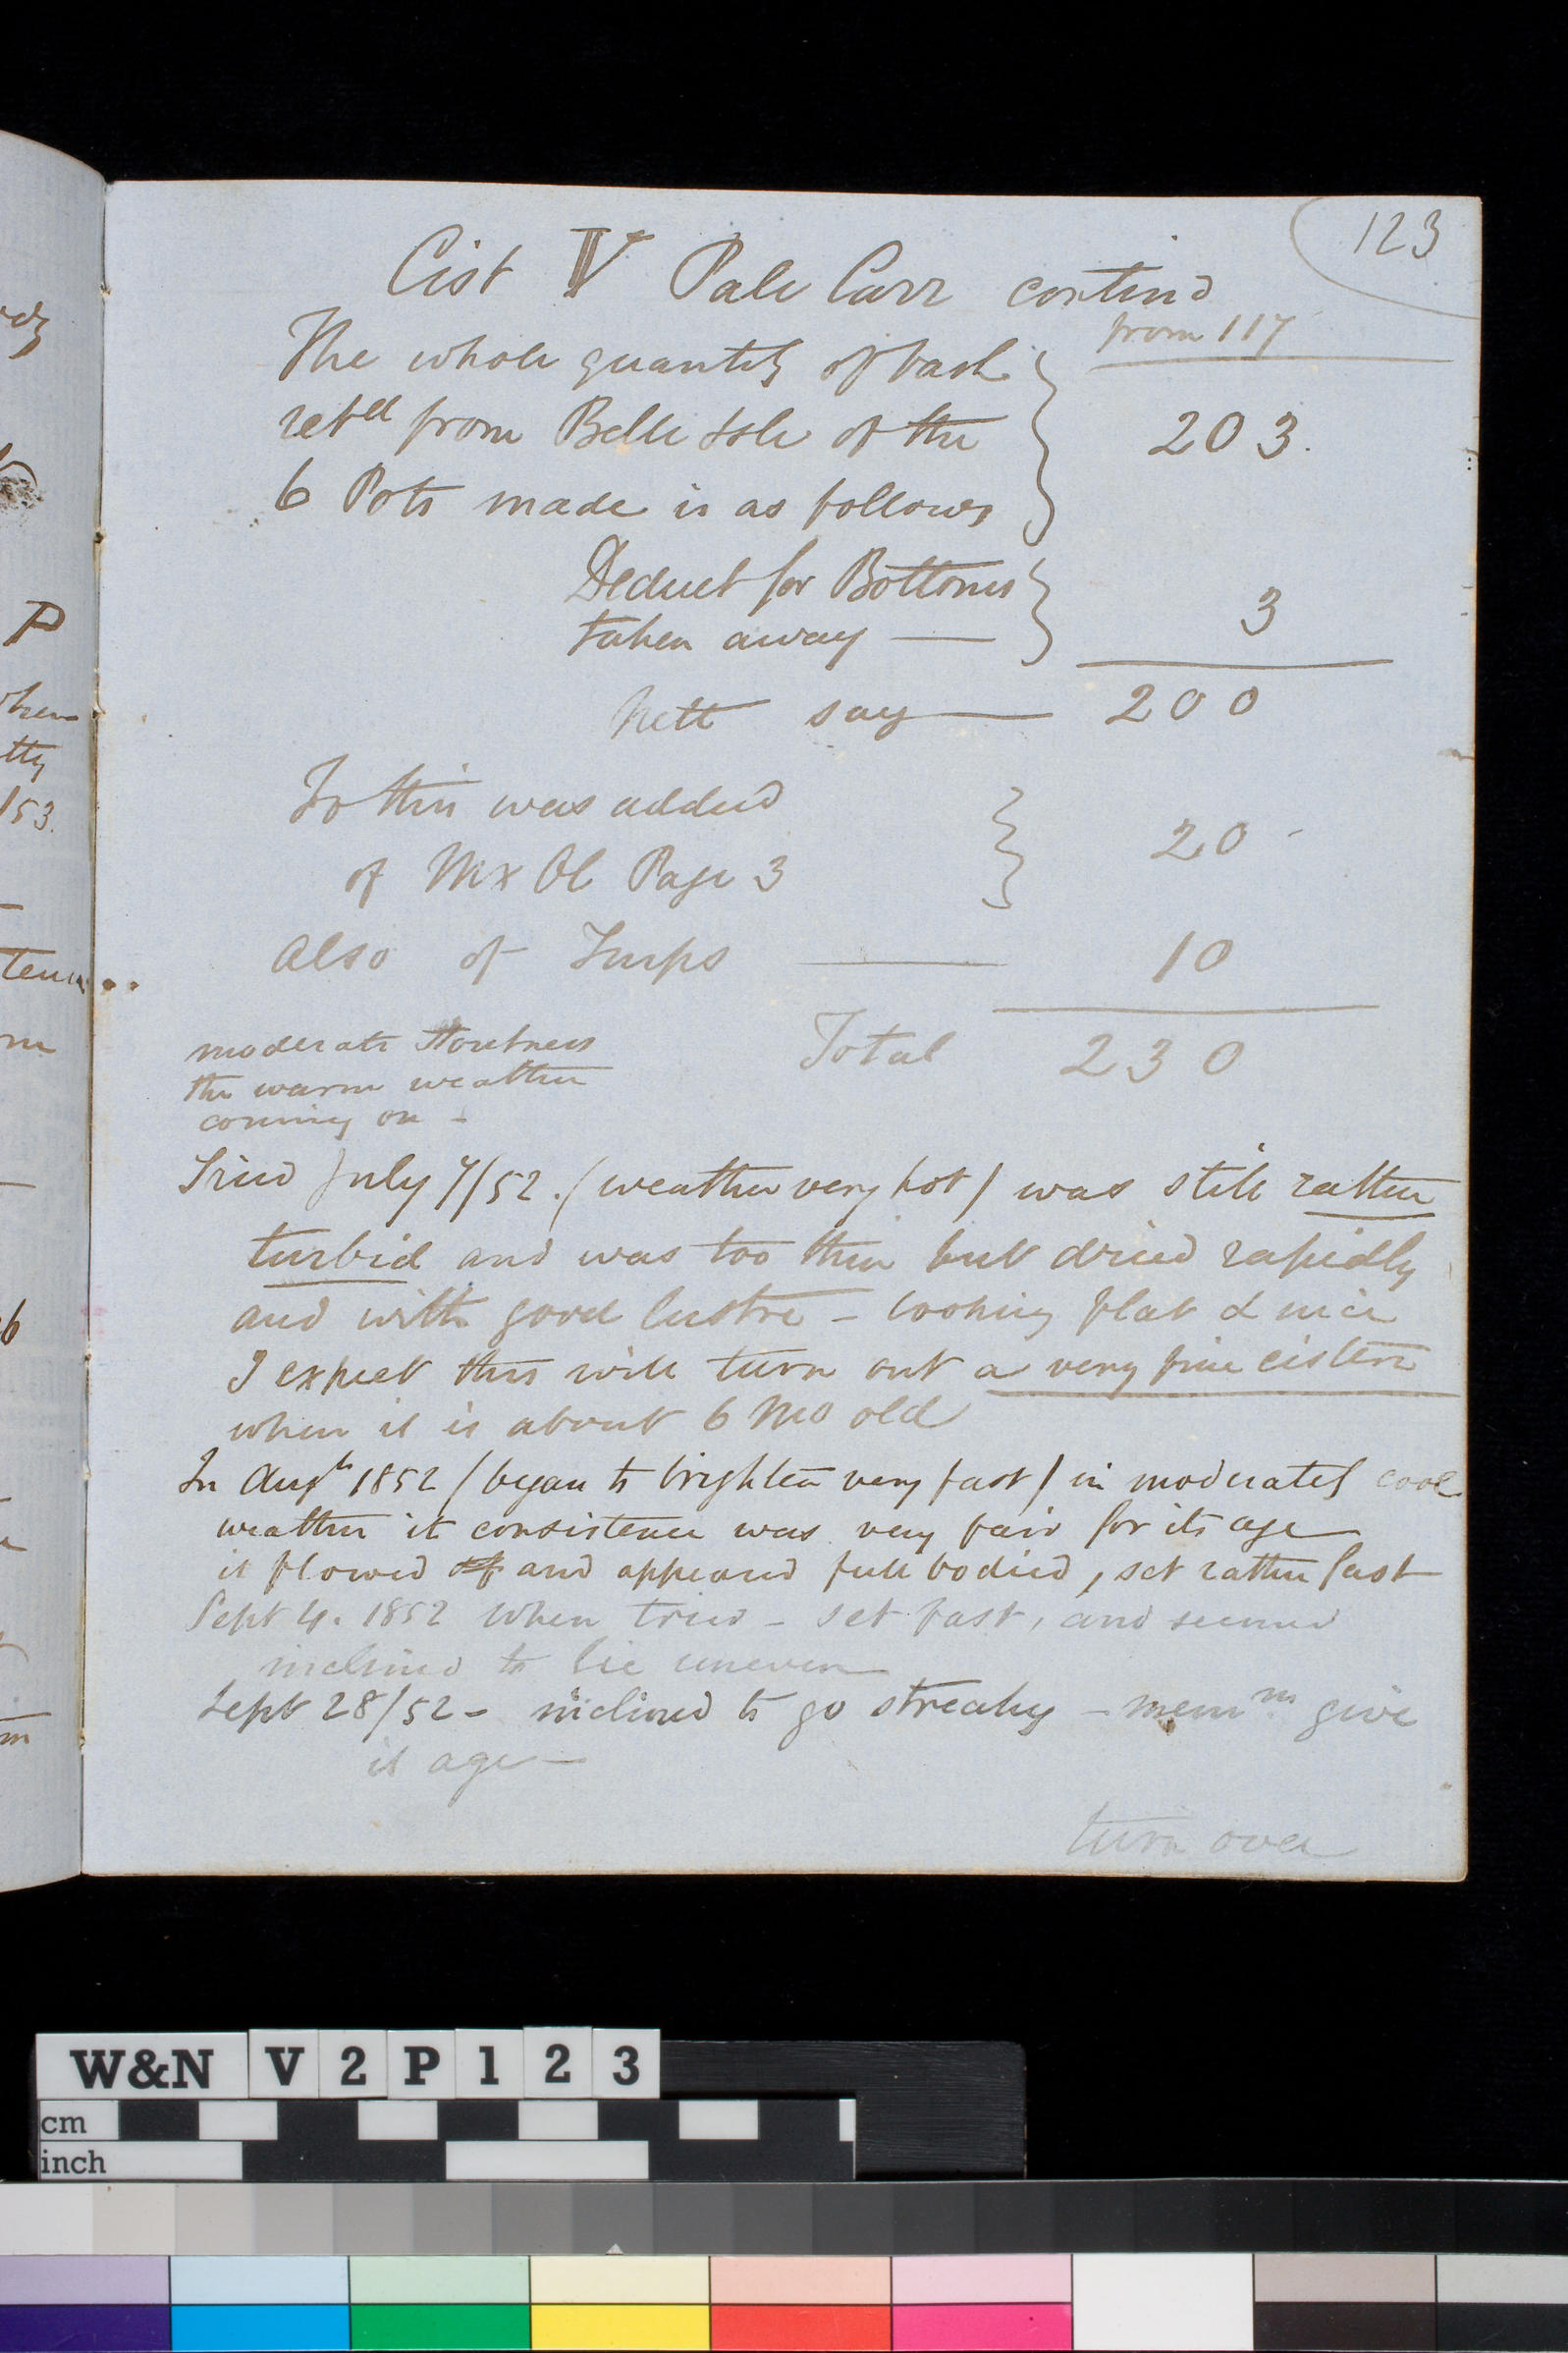 123
Cist V Pale Carr contind
from 117
The whole quantity of
retd from Belle Isle of the 203.
6 Pots made is as follows
Deduct for Bottoms
taken away — 3
Nett say — 200
To this was added
of Mx Ol Page 3 20
Also of Turps — 10
Total 230
moderate Stoutness
the warm weather
coming on -
Tried July 7/52. (weather very hot) was still rather
turbid and was too thin but dried rapidly
and with good lustre - looking flat & nice
I expect this will turn out a very fine cistern
when it is about 6 Mo old
In Augt 1852 (began to brighten very fast) in moderately cool
weather it consistence was very fair for its age
it flowed and appeared full bodied, set rather fast
Sept 4. 1852 when tried - set fast, and seemed
inclined to lie uneven
Sept 28/52 - inclined to go streaky - memm give
it age —
turn over
P
153.
W&N V 2 P 1 2 3
cm
inch